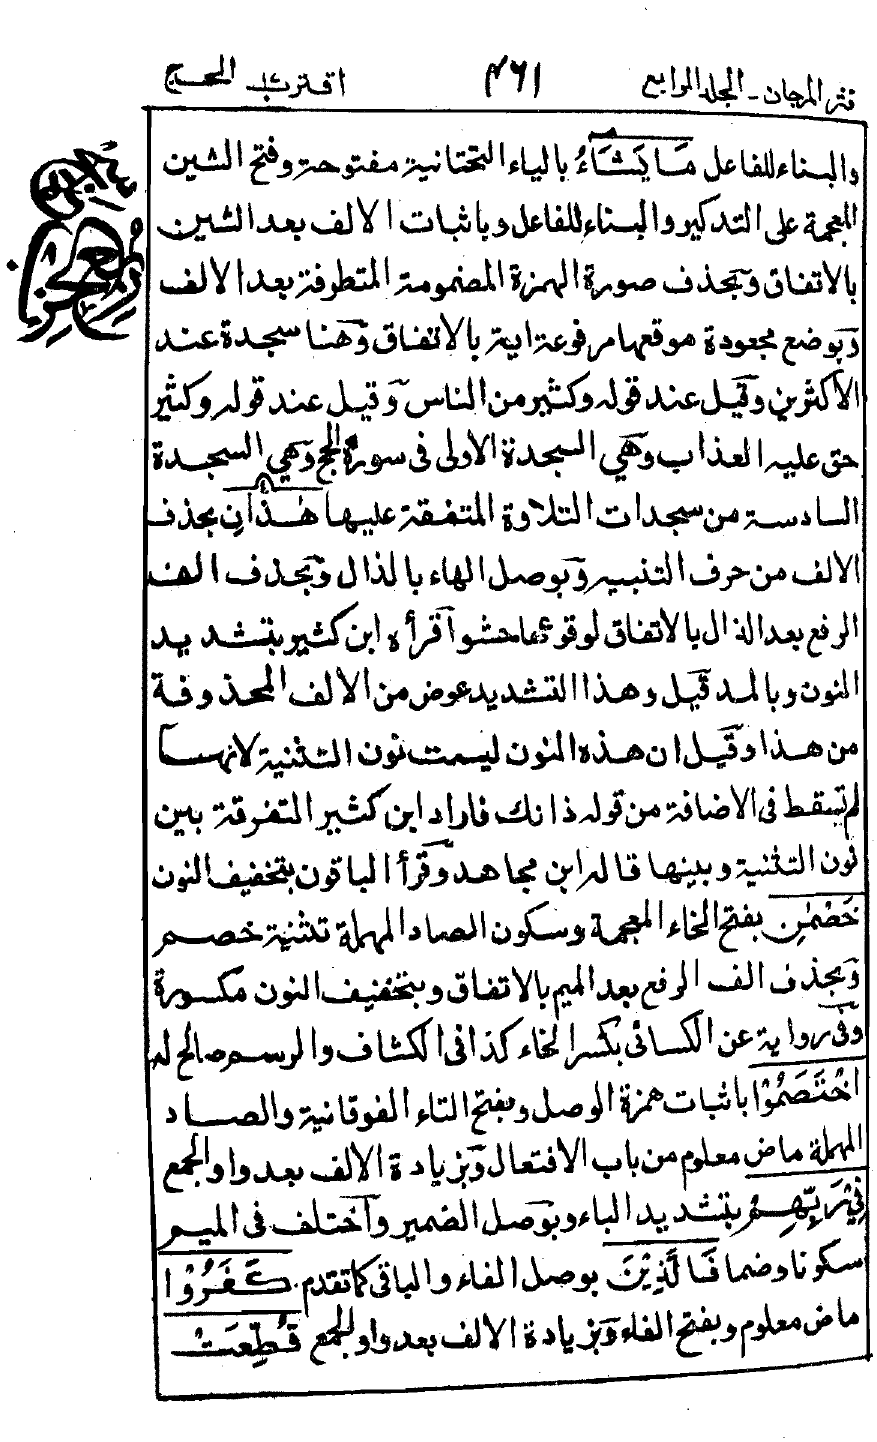 نثر المرجان - الجلد الرابع ٤٦١ اقترب ١٧ الحج
والبناء للفاعل مَا يَشَآءُ بالياء التحتانية مفتوحة وفتح الشين
المعجمة على التذكير والبناء للفاعل وباثبات الالف بعد الشين
بالاتفاق وبحذف صورة الهمزة المضمومة المتطرفة بعد الالف
وبوضع مجعودة موقعها مرفوعة اية بالاتفاق وهنا سجدة عند
الأكثرين وقيل عند قوله وكثير من الناس وقيل عند قوله وكثير
حق عليه العذاب وهي السجدة الاولى في سورة الحج وهي السجدة
السادسة من سجدات التلاوة المتفقة عليها هٰذٰانِ بحذف
الالف من حرف التنبيه وبوصل الهاء بالذال وبحذف الف
الرفع بعد الذال بالاتفاق لوقوعها حشوا قرأه ابن كثير بتشديد
النون وبالمد قيل وهذا التشديد عوض من الالف المحذوفة
من هذا وقيل ان هذه النون ليست نون التثنية لانها
لم تسقط في الاضافة من قوله ذانك فاراد ابن كثير التفرقة بين
نون التثنية وبينها قاله ابن مجاهد وقرأ الباقون بتخفيف النون
خَصْمٰنِ بفتح الخاء المعجمة وسكون الصاد المهملة تثنية خصم
وبحذف الف الرفع بعد الميم بالاتفاق وبتخفيف النون مكسورة
وفي رواية عن الكسائي بكسر الخاء كذا في الكشاف والرسم صالح له
اخْتَصَمُوْا باثبات همزة الوصل وبفتح التاء الفوقانية والصاد
المهملة ماض معلوم من باب الافتعال وبزيادة الالف بعد واو الجمع
فِيْ رَبِّهِمْ بتشديد الباء وبوصل الضمير واختلف في الميم
سكونا وضما فَالَّذِيْنَ بوصل الفاء والباقي كما تقدم كَفَرُوْا
ماض معلوم وبفتح الفاء وبزيادة الالف بعد واو الجمع قُطِّعَتْ